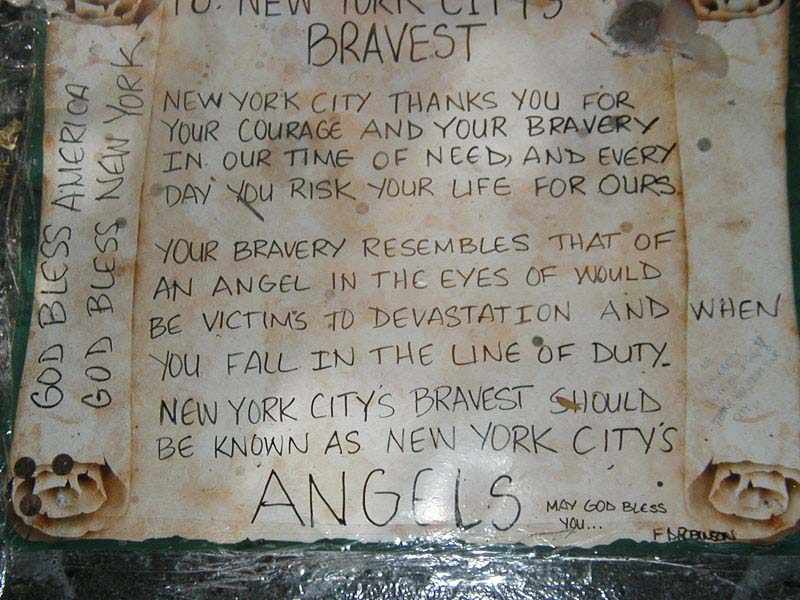 TO: NEW YORK CITY'S
BRAVEST
NEW YORK CITY THANKS YOU FOR
YOUR COURAGE AND YOUR BRAVERY
IN OUR TIME OF NEED, AND EVERY
DAY YOU RISK YOUR LIFE FOR OURS.
YOUR BRAVERY RESEMBLES THAT OF
AN ANGEL IN THE EYES OF WOULD
BE VICTIM'S TO DEVASTATION AND WHEN
YOU FALL IN THE LINE OF DUTY.
NEW YORK CITY'S BRAVEST SHOULD
BE KNOWN AS NEW YORK CITY'S
ANGELS
MAY GOD BLESS
YOU...
ROBINSON
GOD BLESS AMERICA
GOD BLESS NEW YORK